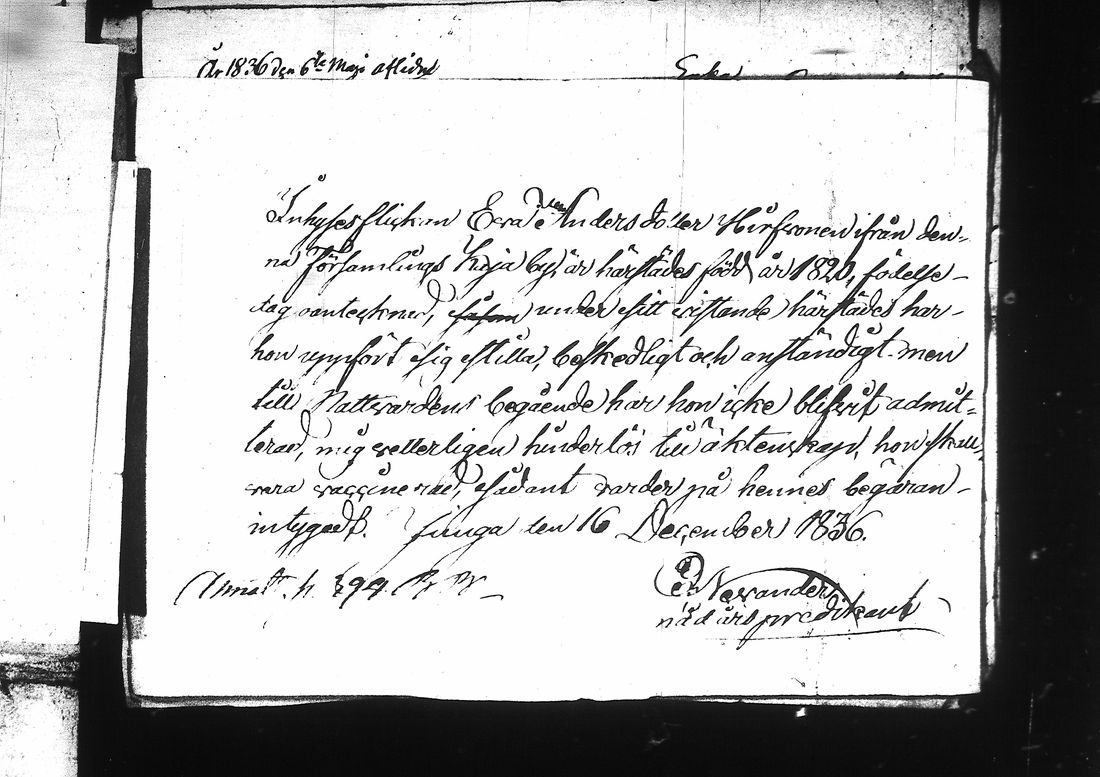 År 1836 den 6te Maji afliden
Enkan
Inhyses flickan Eva Andersdotter Hirfvonen ifrån den-
na Församlings Kuja by, är härstädes född år 1820, födelse-
dag oantecknad, såsom under sitt vistande härstädes har-
hon uppfört sig stilla, beskedligt och anständigt men
till Nattvardens begående har hon icke blifvit admit-
terad, mig vetterligen hinderlös till äktenskap, hon skall
vara vaccinerad, sådant varder på hennes begäran-
intygadt. Ljunga den 16 December 1836.
Annot. h 299.
Nevander
nådårs predikant